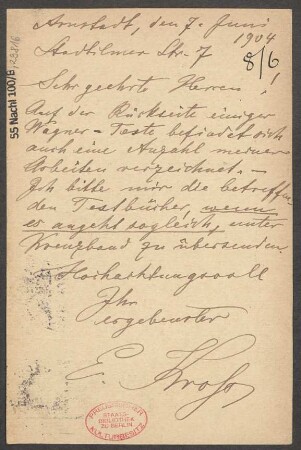 Arnstadt, den 7. Juni
1904
Stadtilmer Str. 7
8/6
Sehr geehrte Herren!
Auf der Rückseite einiger
Wagner-Texte befindet sich
auch eine Anzahl meiner
Arbeiten verzeichnet. –
Ich bitte mir die betreffen-
den Textbücher, wenn
es angeht sogleich, unter
Kreuzband zu übersenden.
Hochachtungsvoll
Ihr
ergebenster
E.
55 Nachl 100/B
PREUSSISCHER
STAATS-
BIBLIOTHEK
ZU BERLIN
KULTURBESITZ